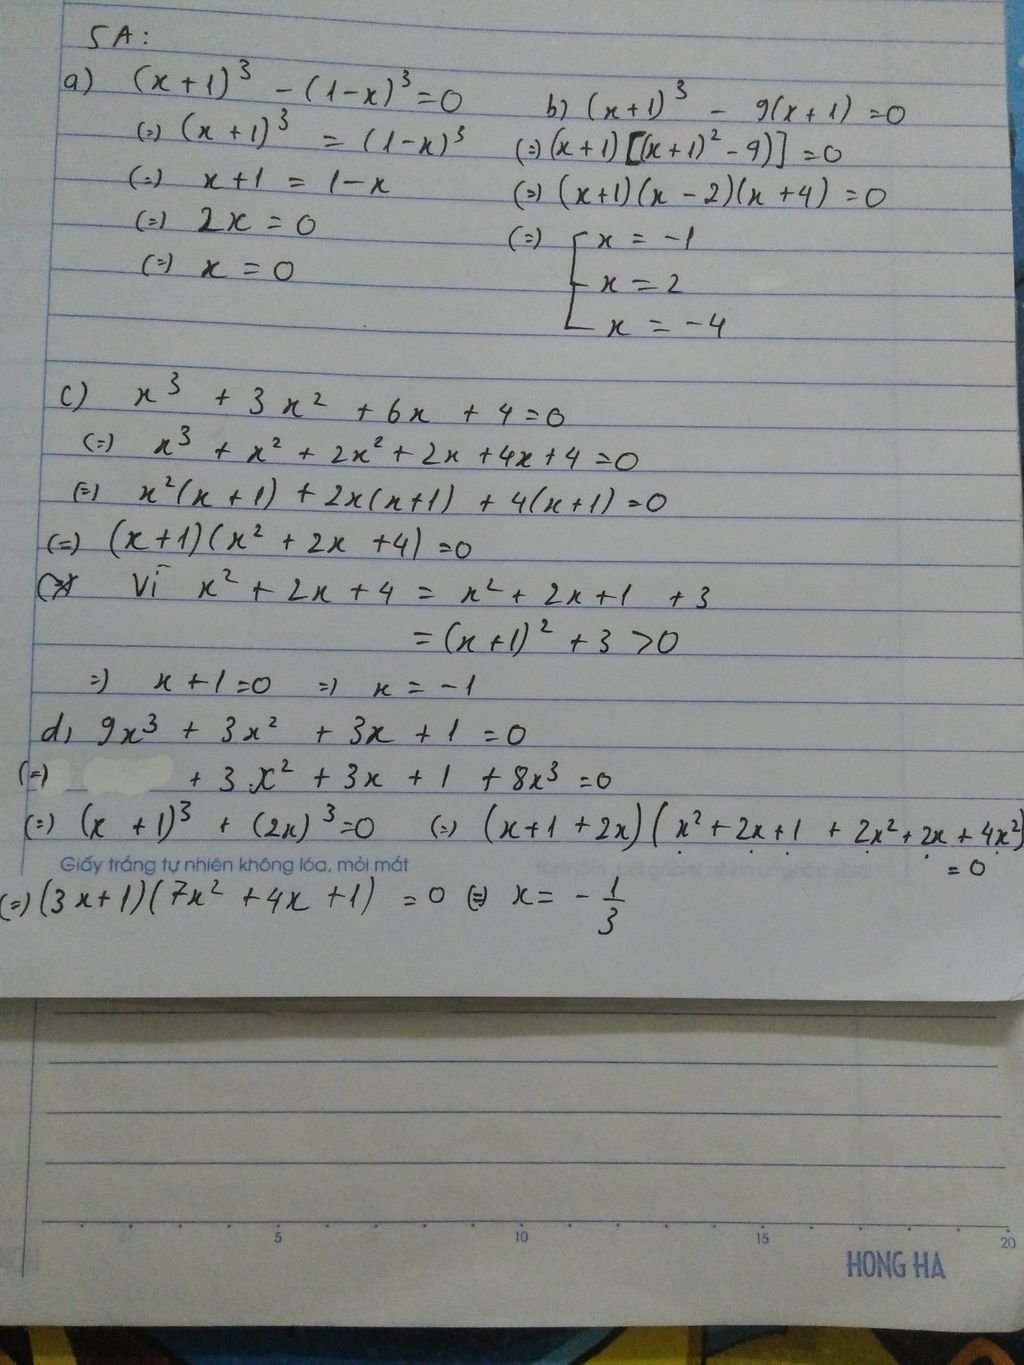 5A:
a) (x+1)³ - (1-x)³ = 0
(=) (x+1)³ = (1-x)³
(=) x+1 = 1-x
(=) 2x = 0
(=) x = 0
b) (x+1)³ - 9(x+1) = 0
(=) (x+1)[(x+1)² - 9)] = 0
(=) (x+1)(x-2)(x+4) = 0
(=) [ x = -1
x = 2
x = -4
c) x³ + 3x² + 6x + 4 = 0
(=) x³ + x² + 2x² + 2x + 4x + 4 = 0
(=) x²(x+1) + 2x(x+1) + 4(x+1) = 0
(=) (x+1)(x² + 2x + 4) = 0
Vì x² + 2x + 4 = x² + 2x + 1 + 3
= (x+1)² + 3 > 0
=) x+1 = 0 =) x = -1
d, 9x³ + 3x² + 3x + 1 = 0
(=) + 3x² + 3x + 1 + 8x³ = 0
(=) (x+1)³ + (2x)³ = 0 (=) (x+1+2x)(x²+2x+1 + 2x²+2x+4x²)
Giấy trắng tự nhiên không lóa, mỏi mắt
= 0
(=) (3x+1)(7x² + 4x + 1) = 0 (=) x = - 1/3
5 10 15 20
HONG HA